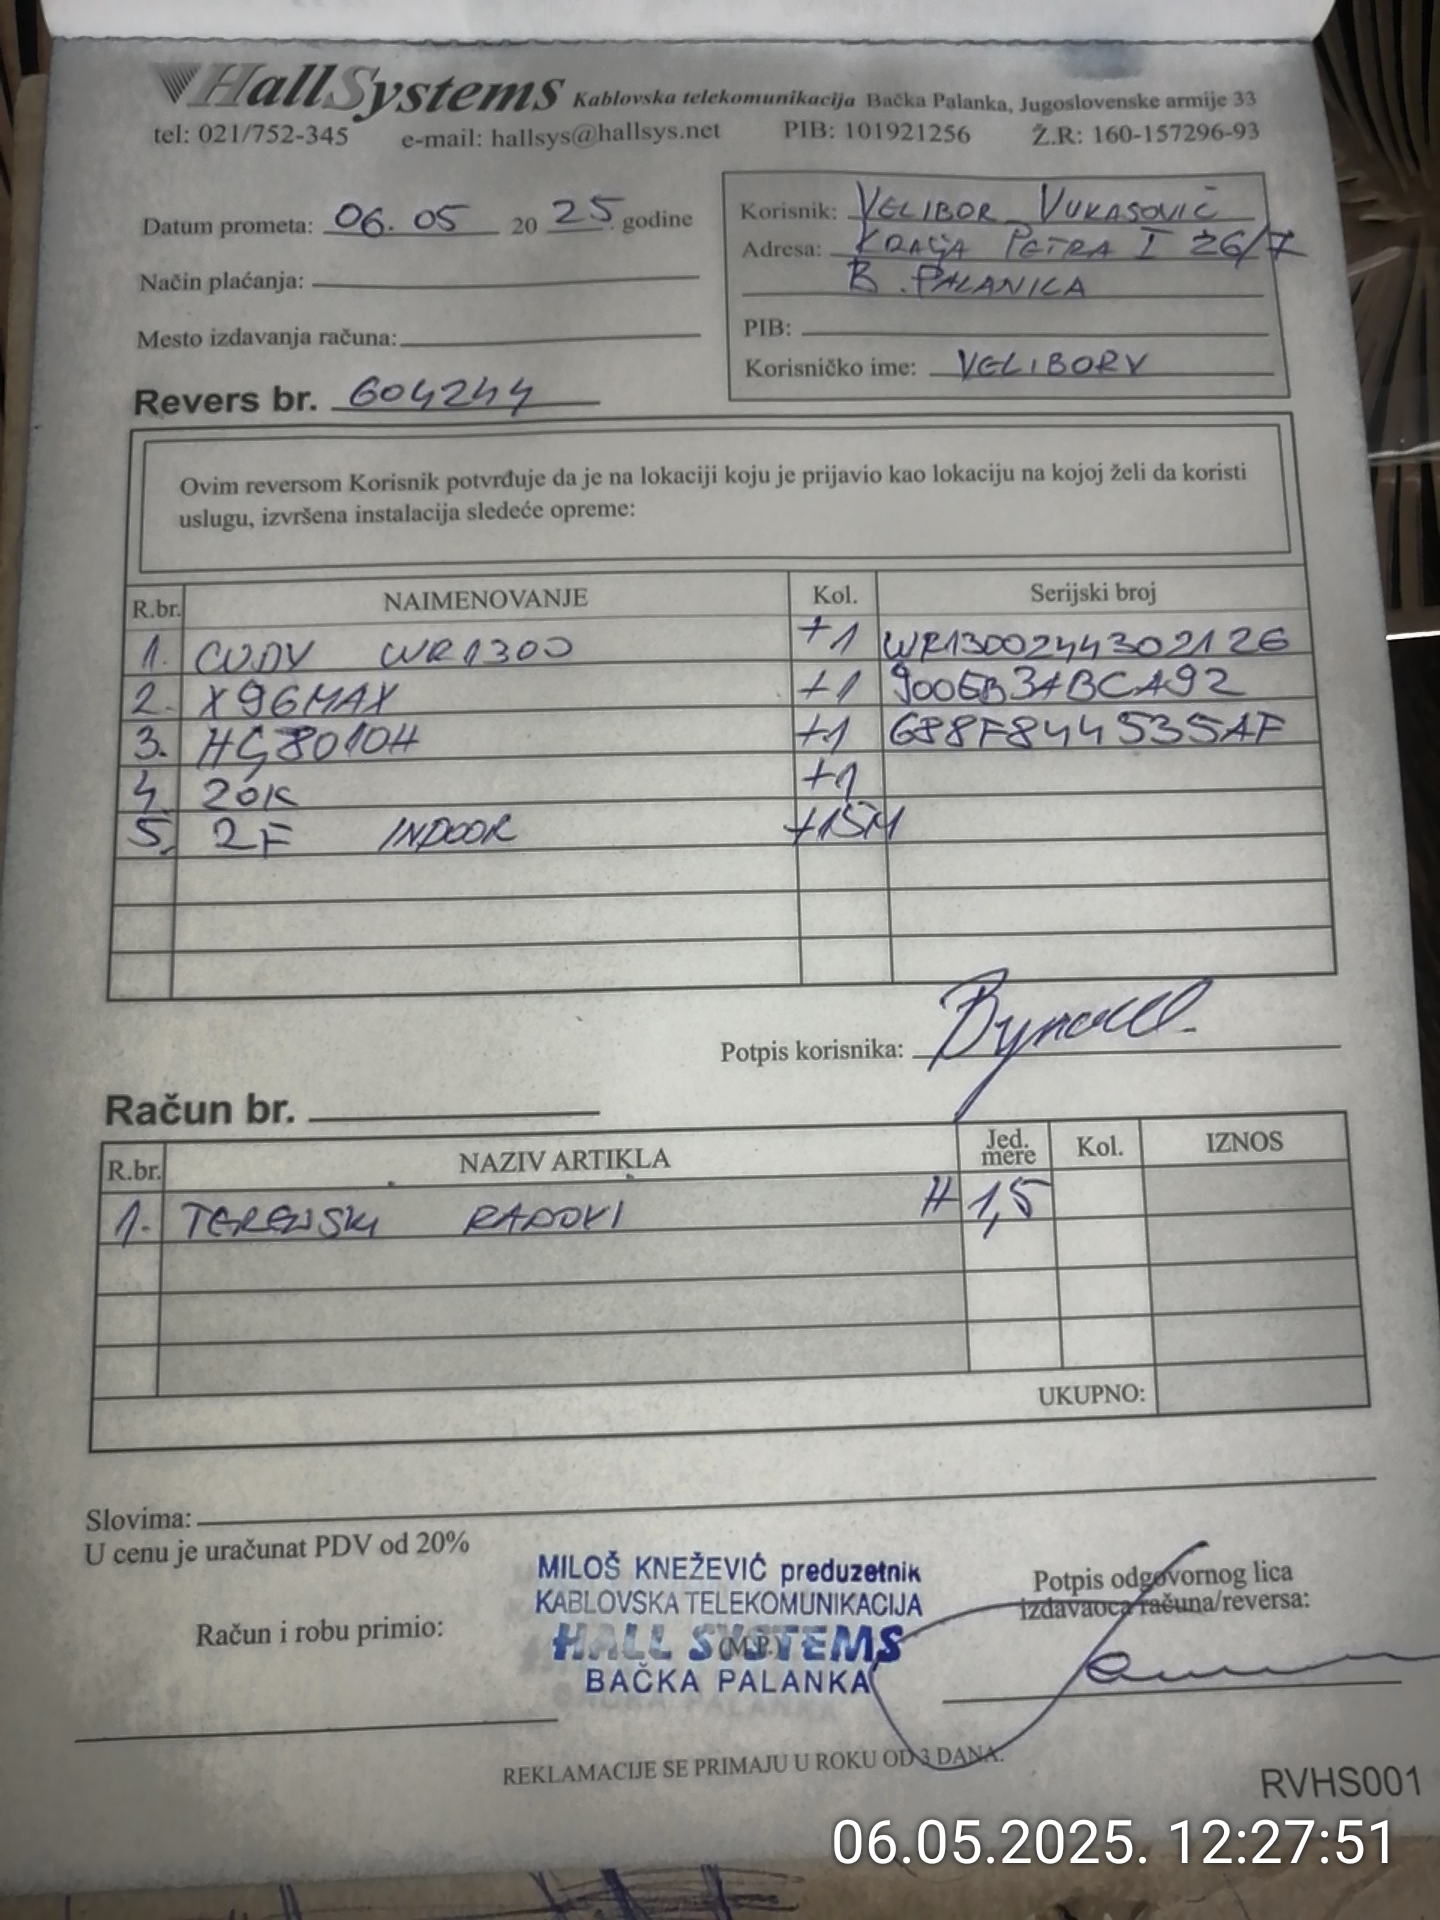 HallSystems Kablovska telekomunikacija Bačka Palanka, Jugoslovenske armije 33
tel: 021/752-345 e-mail: hallsys@hallsys.net PIB: 101921256 Ž.R: 160-157296-93
Datum prometa: 06. 05 20 25. godine
Način plaćanja:
Mesto izdavanja računa:
Revers br. 604244
Korisnik: VELIBOR VUKASOVIĆ
Adresa: KRALJA PETRA I 26/7
B. PALANKA
PIB:
Korisničko ime: VELIBORV
Ovim reversom Korisnik potvrđuje da je na lokaciji koju je prijavio kao lokaciju na kojoj želi da koristi
uslugu, izvršena instalacija sledeće opreme:
R.br. NAIMENOVANJE Kol. Serijski broj
1. CUDY WR1300 +1 WR1300244302126
2. X96MAX +1 900EB3ABCA92
3. HG8010H +1 688F844535AF
4. ZOK +1
5. 2F INDOOR +15M
Potpis korisnika:
Račun br.
R.br. NAZIV ARTIKLA Jed. mere Kol. IZNOS
1. TERENSKI RADOVI H 1,5
UKUPNO:
Slovima:
U cenu je uračunat PDV od 20%
Račun i robu primio:
MILOŠ KNEŽEVIĆ preduzetnik
KABLOVSKA TELEKOMUNIKACIJA
HALL SYSTEMS
(M.P.)
BAČKA PALANKA
Potpis odgovornog lica
izdavaoca računa/reversa:
REKLAMACIJE SE PRIMAJU U ROKU OD 3 DANA.
RVHS001
06.05.2025. 12:27:51